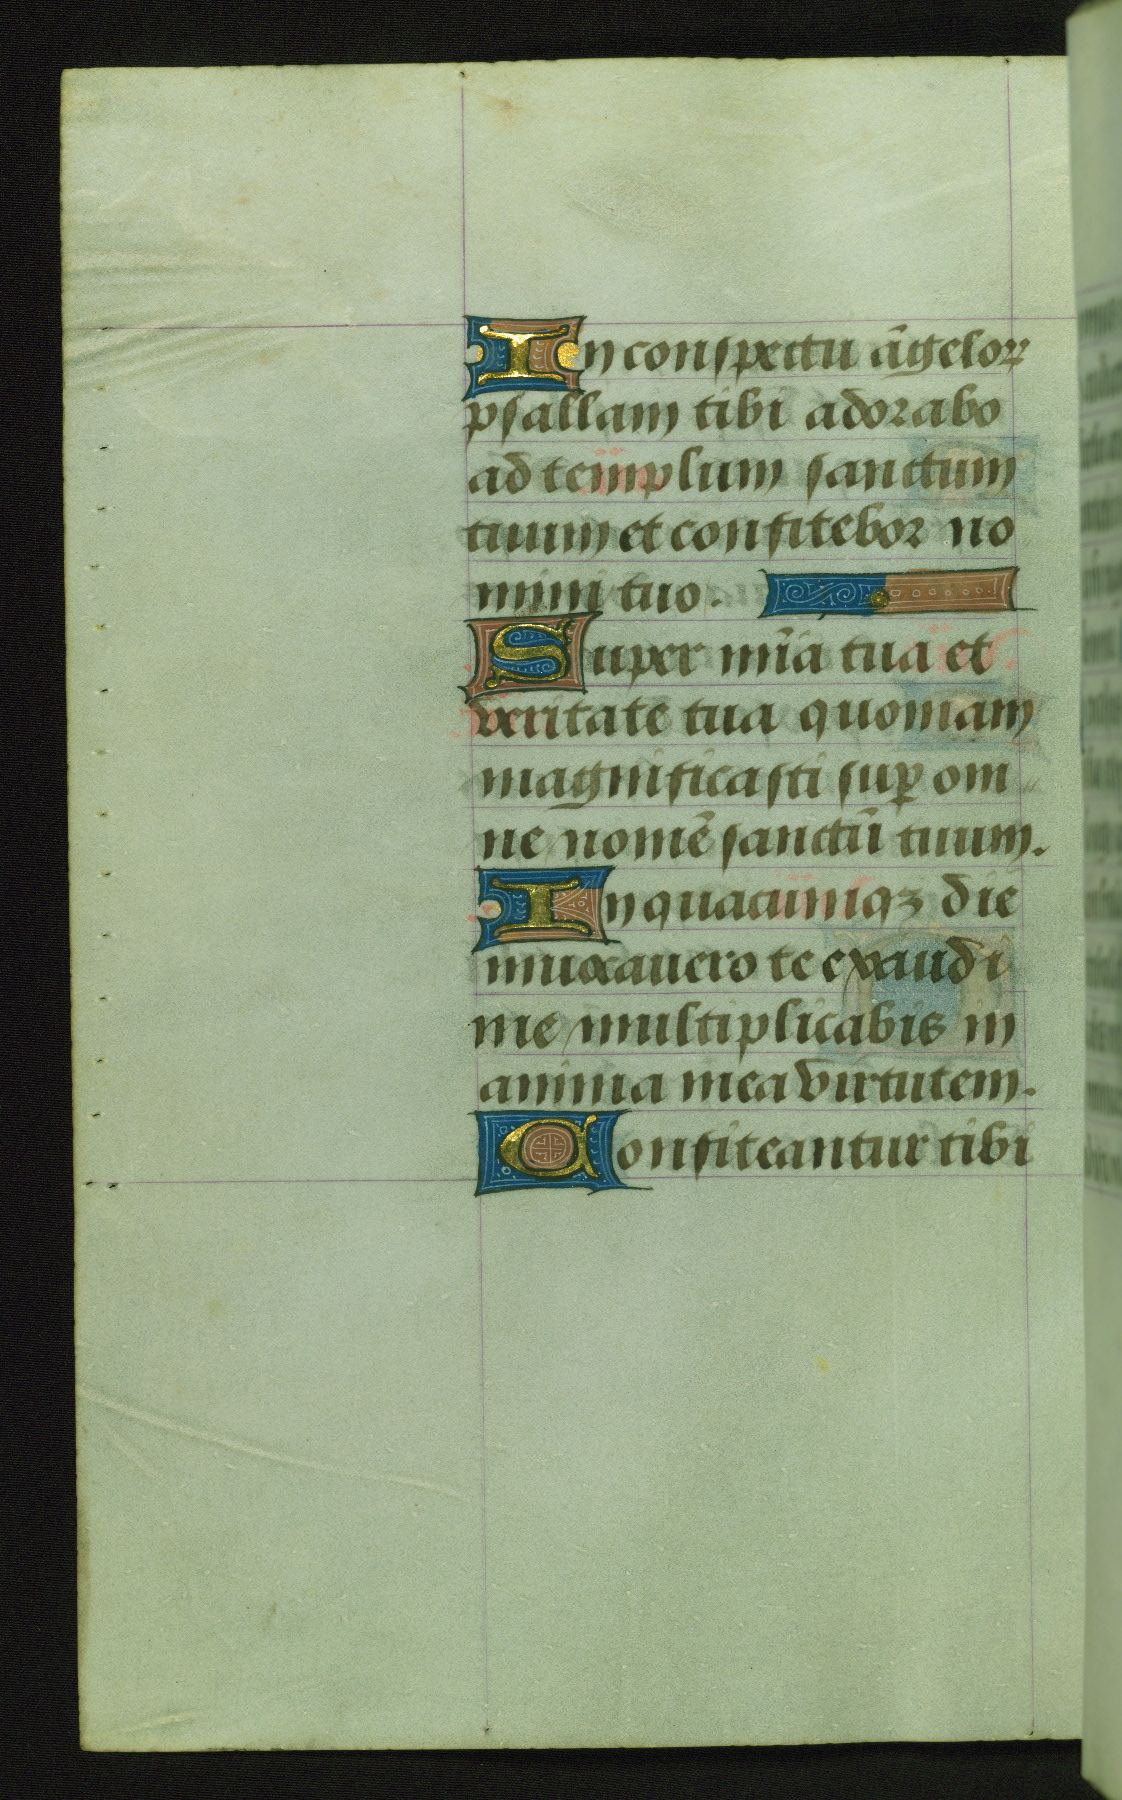 In conspectu āgeloꝝ
psallam tibi adorabo
ad templum sanctum
tuum et confitebor no
mini tuo.
Super mīa tua et
veritate tua quoniam
magnificasti suꝑ om
ne nomē sanctū tuum.
In quacumqꝫ die
inuocauero te exaudi
me multiplicabis in
anima mea virtutem.
Confiteantur tibi